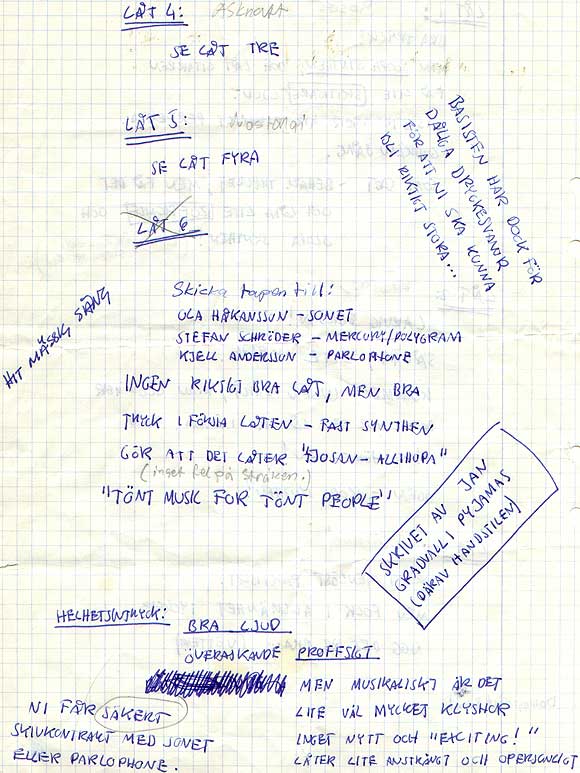 LÅT 4: ASKNOVA
SE LÅT TRE
LÅT 5: nostalgi
SE LÅT FYRA
LÅT 6
BASISTEN HAR DOCK FÖR
DÅLIGA DRYCKESVANOR
FÖR ATT NI SKA KUNNA
BLI RIKTIGT STORA...
HIT MÄSSIG SÅNG
Skicka tapen till:
OLA HÅKANSSON - SONET
STEFAN SCHRÖDER - MERCURY/POLYGRAM
KJELL ANDERSSON - PARLOPHONE
INGEN RIKTIGT BRA LÅT, MEN BRA
TRYCK I FÖRSTA LÅTEN - FAST SYNTHEN
GÖR ATT DET LÅTER "TJOSAN-ALLIHOPA"
(inget fel på stråken.)
"TÖNT MUSIC FOR TÖNT PEOPLE"
SKRIVET AV JAN
GRADVALL I PYJAMAS
(DÄRAV HANDSTILEN)
HELHETSINTRYCK: BRA LJUD
ÖVERASKANDE PROFFSIGT
MEN MUSIKALISKT ÄR DET
LITE VÄL MYCKET KLYSHOR
INGET NYTT OCH "EXCITING!"
LÅTER LITE ANSTRÄNGT OCH OPERSONLIGT
NI FÅR SÄKERT
SKIVKONTRAKT MED SONET
ELLER PARLOPHONE.